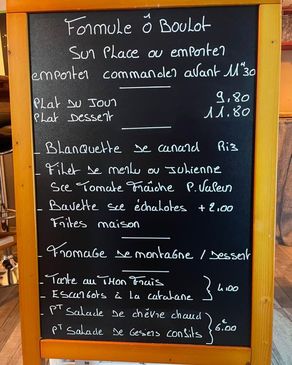 Formule Ô Boulot
Sur Place ou emporter
emporter commander avant 11H30
Plat Du Jour 9,80
Plat Dessert 11.80
- Blanquette de canard Riz
- Filet de merlu ou Julienne
Sce Tomate Fraîche P. Valeur
- Bavette sce échalotes + 2.00
Frites maison
- Fromage de montagne / Dessert
- Tarte au Thon Frais
- Escargots à la catalane } 4,00
- PT Salade de chèvre chaud
- PT Salade de Gesiers confits } 6.00